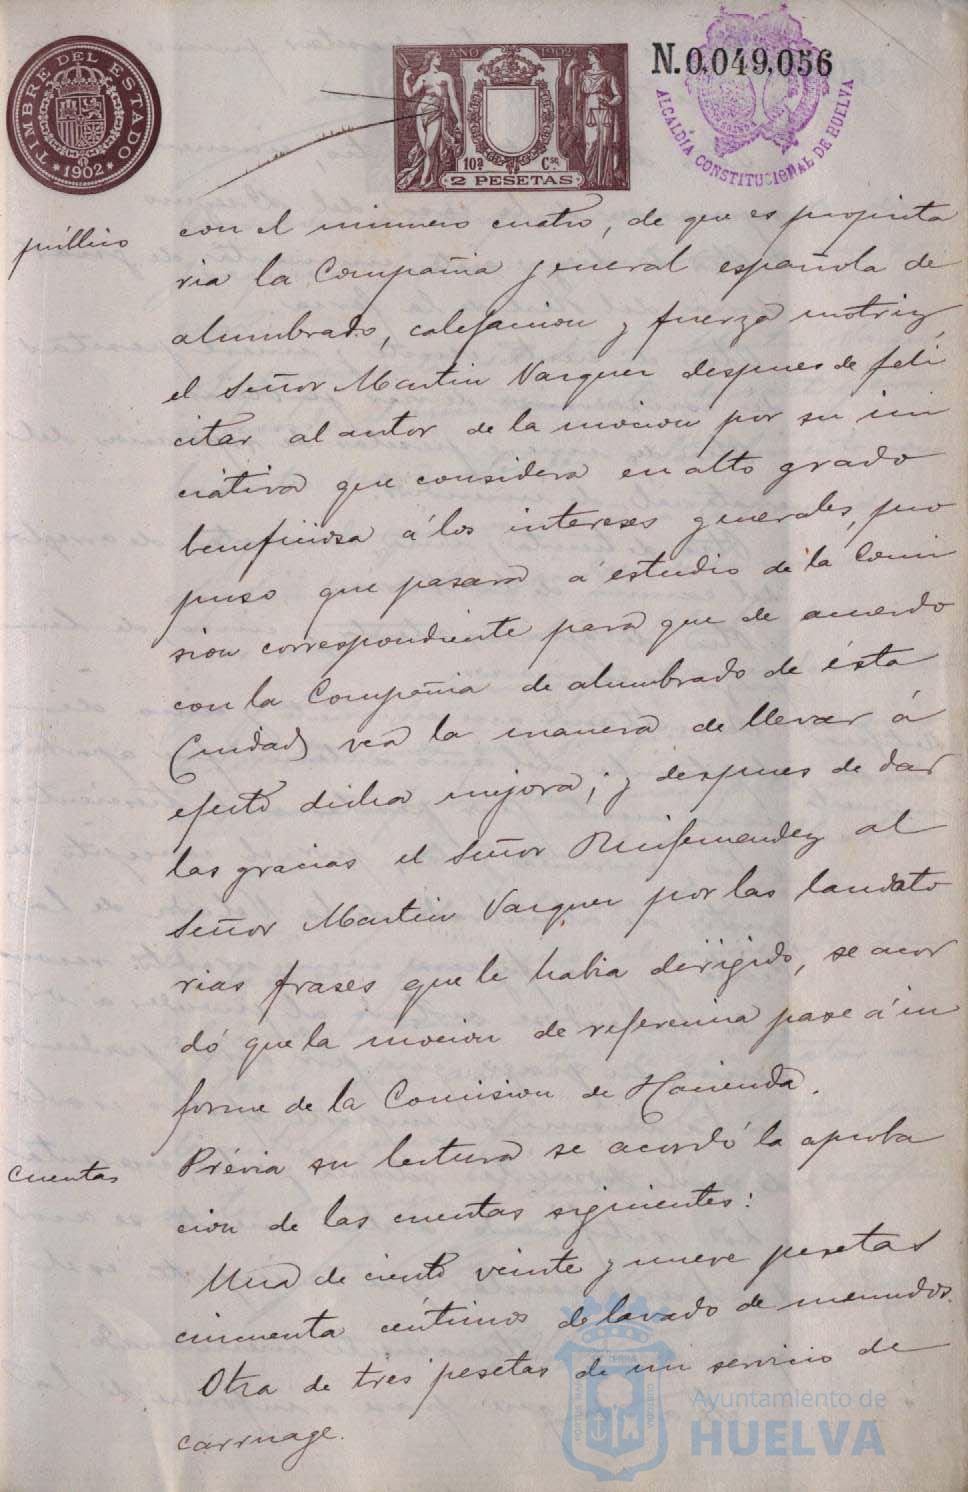 TIMBRE DEL ESTADO
* 1902 *
AÑO 1902
10ª Cse
2 PESETAS
N.0,049,056
ALCALDÍA CONSTITUCIONAL DE HUELVA
público
con el número cuatro, de que es propieta
ria la Compañia general española de
alumbrado, calefaccion y fuerza motriz,
el Señor Martin Vazquez despues de feli
citar al autor de la mocion por su ini
ciativa que considera en alto grado
beneficiosa á los intereses generales, pro
puso que pasara á estudio de la Comi
sion correspondiente para que de acuerdo
con la Compañia de alumbrado de ésta
Ciudad vea la manera de llevar á
efecto dicha mejora; y despues de dar
las gracias el Señor Ruifernandez al
Señor Martin Vazquez por las laudato
rias frases que le habia dirigido, se acor
dó que la mocion de referencia pase á in
forme de la Comision de Hacienda.
cuentas
Prévia su lectura se acordó la aproba
cion de las cuentas siguientes:
Una de ciento veinte y nueve pesetas
cincuenta céntimos de lavado de menudos.
Otra de tres pesetas de un servicio de
carruage.
Ayuntamiento de
HUELVA